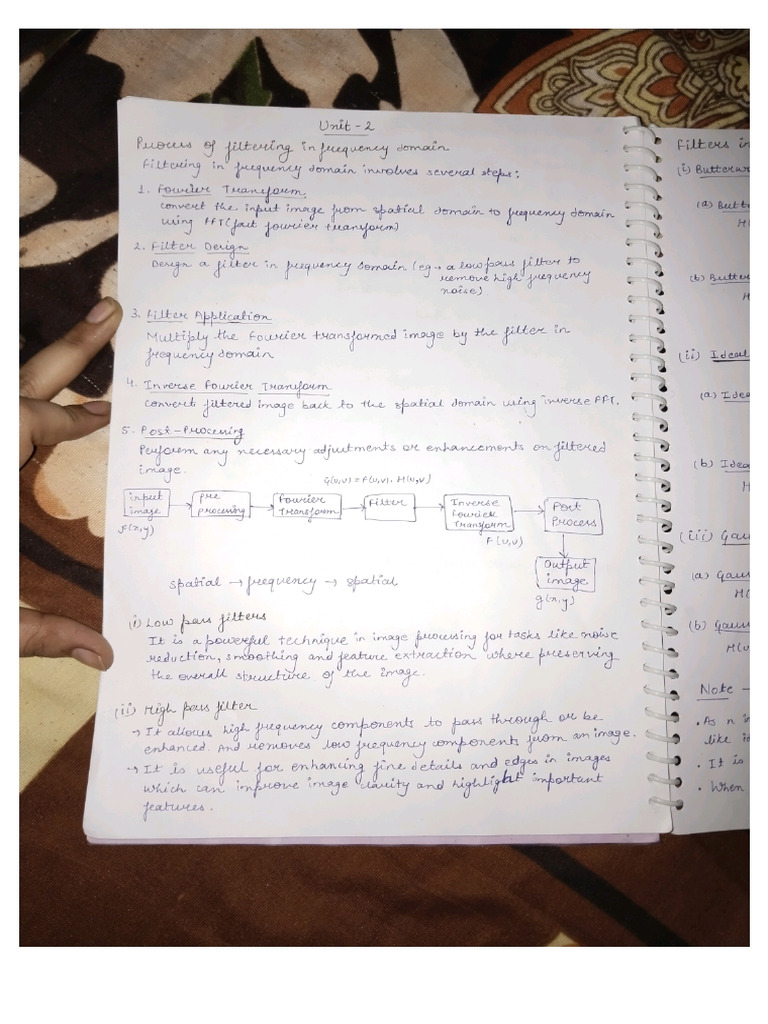 Unit-2
Process of filtering in frequency domain
Filtering in frequency domain involves several steps:
1. Fourier Transform
convert the input image from spatial domain to frequency domain
using FFT (fast fourier transform)
2. Filter Design
Design a filter in frequency domain (eg → a low pass filter to
remove high frequency
noise)
3. Filter Application
Multiply the Fourier transformed image by the filter in
frequency domain
4. Inverse Fourier Transform
Convert filtered image back to the spatial domain using inverse FFT.
5. Post-Processing
Perform any necessary adjustments or enhancements on filtered
image.
G(u,v) = F(u,v). H(u,v)
input
image
Pre
processing
Fourier
Transform
Filter
Inverse
Fourier
Transform
Post
Process
f(x,y)
F(u,v)
Output
image
g(x,y)
spatial → frequency → spatial
(i) Low pass filters
It is a powerful technique in image processing for tasks like noise
reduction, smoothing and feature extraction where preserving
the overall structure of the image.
(ii) High pass filter
→ It allows high frequency components to pass through or be
enhanced. And removes low frequency components from an image.
→ It is useful for enhancing fine details and edges in images
which can improve image clarity and highlight important
features.
Filters in
(i) Butterw
(a) Butt
H(
(b) Butter
H
(ii) Ideal
(a) Idea
(b) Idea
H
(iii) Gau
(a) Gaus
H(
(b) Gauss
H(u
Note -
• As n in
like id
• It is
• When